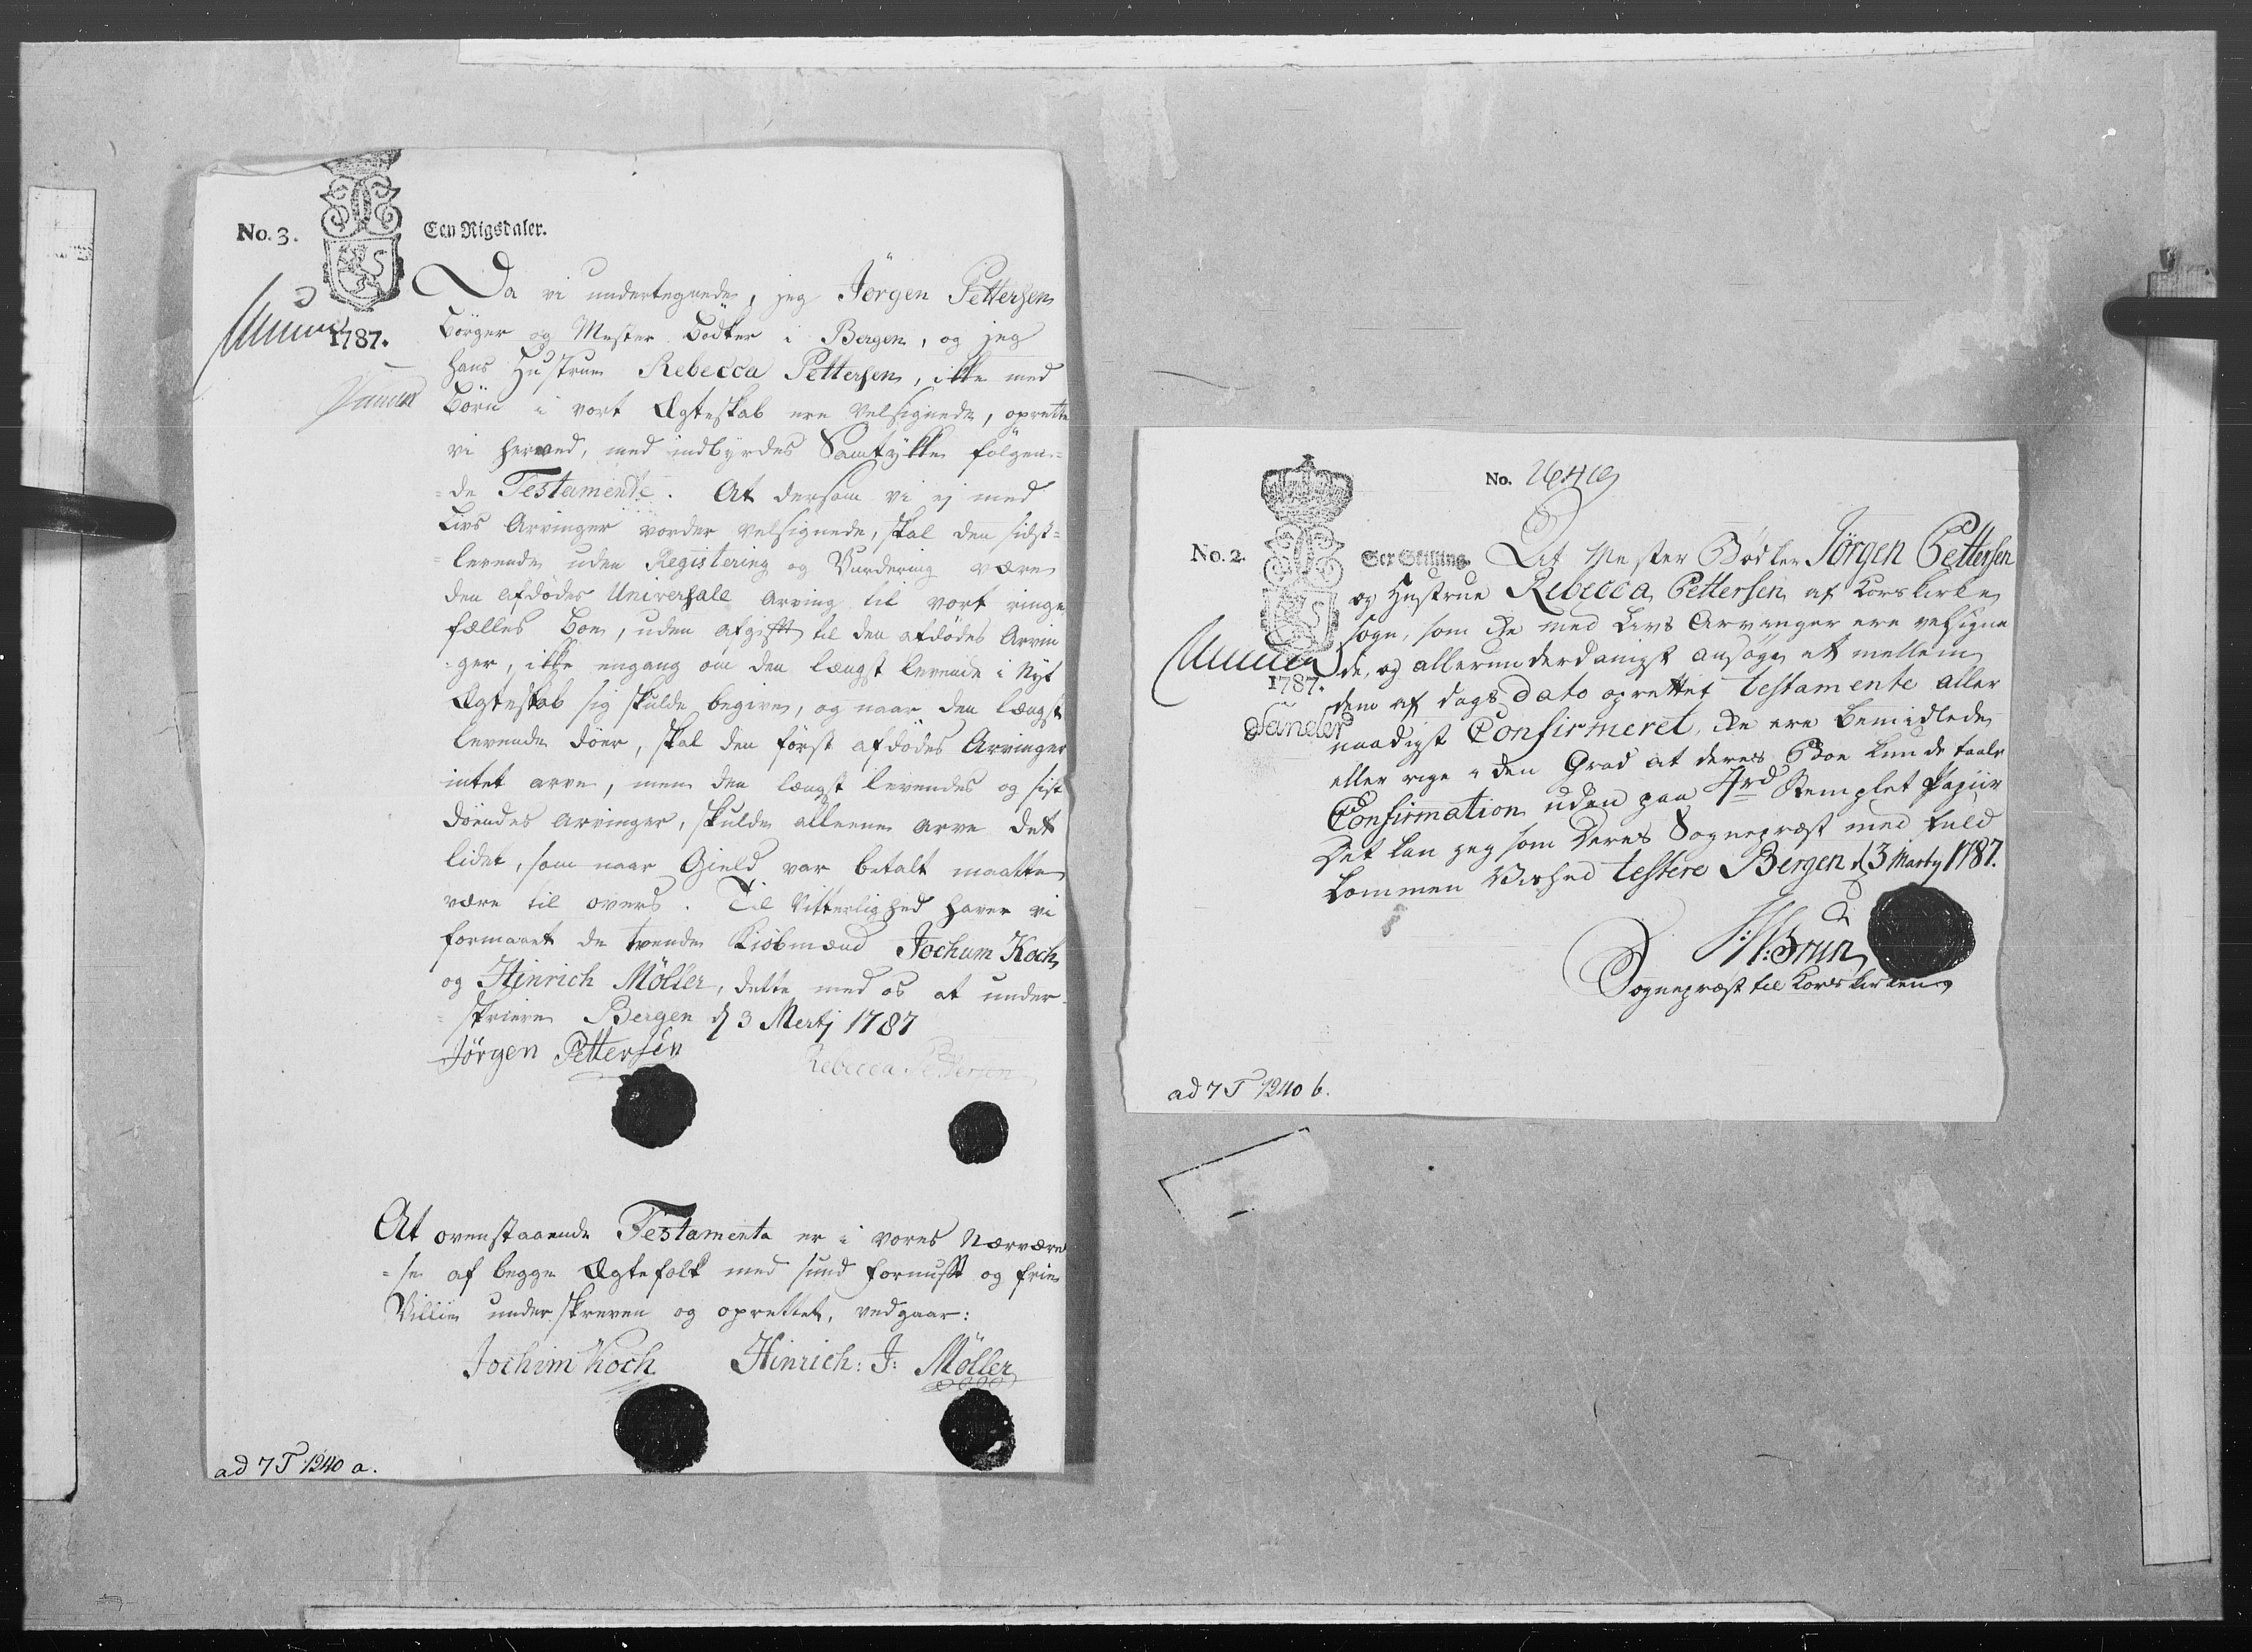 No. 3.
Een Rigsdaler.
1787.
Da vi undertegnede, jeg Jörgen Pettersen
Börger og Mester Bödker i Bergen, og jeg
hans Hustrue Rebecca Pettersen, ikke med
Börn i vort Ægteskab ere velsignede, oprette
vi herved, med indbyrdes Samtykke fölgen=
=de Testamente. At dersom vi ej med
Livs Arvinger vorder velsignede, skal den sidst=
=levende uden Registering og Vurdering være
den afdödes Universale Arving til vort ringe
fælles Boe, uden afgift til den afdödes Arvin
=ger, ikke engang om den længst levende i Nyt
Ægteskab sig skulde begive, og naar den længst
levende döer, skal den först afdödes Arvinger
intet arve, men den længst levendes og sist
döendes arvinger, skulde alleene arve det
lidet, som naar Gield var betalt maatte
være til overs. Til Vitterlighed haver vi
formaaet de tvende Kiöbmænd Jochum Koch
og Hinrich Möller, dette med os at under=
=skrive Bergen d 3 Martj 1787
Jörgen Pettersen
Rebecca Pettersen
At ovenstaaende Testamenta er i vores Nærværel
=se af begge Ægtefolk med sund fornuft og frie
Villie underskreven og oprettet, vedgaar:
Jochim Koch Hinrich: J: Möller
ad 7 T 1240 a.
No.
No. 2.
Sex Skilling.
1787.
At Mester Bödker Jörgen Pettersen
og Hustrue Rebecca Pettersen af Korskirke
sogn, som ikke med Livs Arvinger ere velsigne
de, og allerunderdanigst ansöge at mellem
dem af dags dato oprettet testamente aller
naadigst Confirmeret, ikke ere bemidlede
eller rige i den Grad at deres Boe kunde taale
Confirmation uden paa 4rd Stemplet Papiir
Det kan jeg som deres Sognepræst med fuld
kommen Vished testere Bergen d 3 Martij 1787.
Brun
Sognepræst til Korskirken
ad 7 T 1240 b.